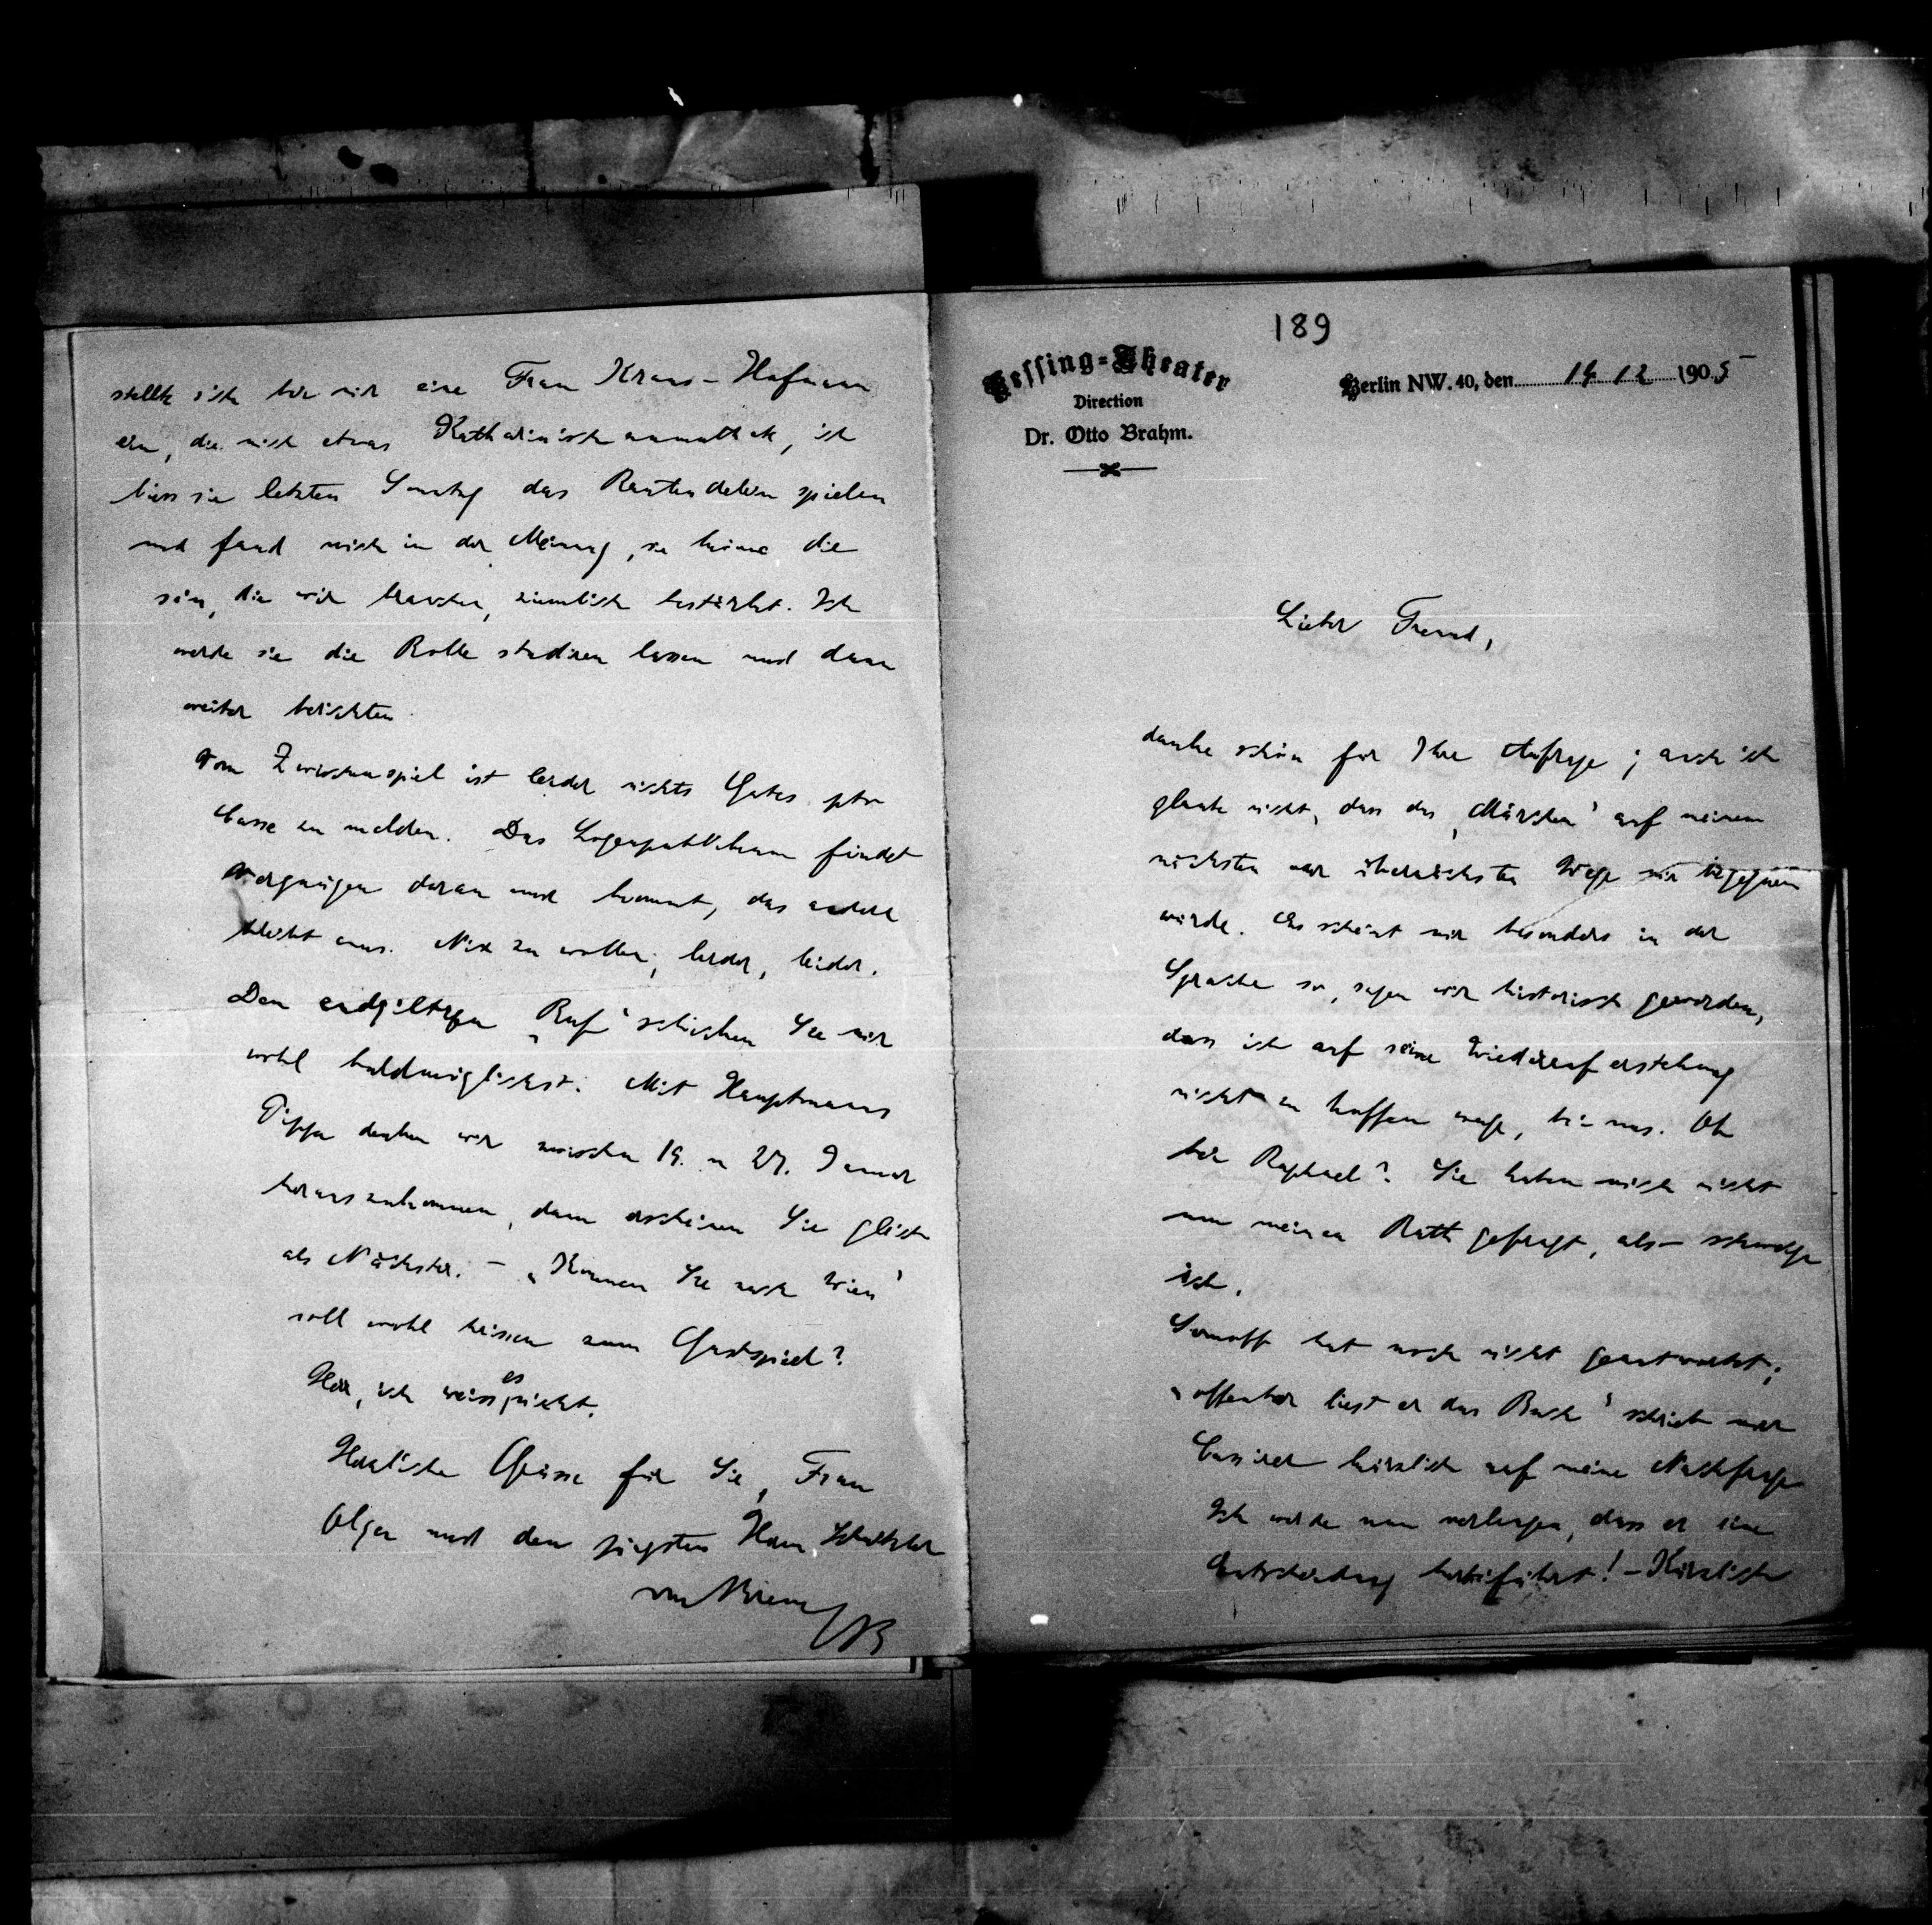 189
Lessing=Theater
Direction
Dr. Otto Brahm.
Berlin NW. 40, den 14 12 1905
Lieber Freund,
danke schön für Ihre Anfrage; auch ich
glaube nicht, dass das „Märchen“ auf meinem
nächsten oder übernächsten Wege mir begegnen
würde. Es scheint mir besonders in der
Sprache so, sagen wir historisch geworden,
dass ich auf seine Wiederauferstehung
nicht zu hoffen wage, bei uns. Ob
bei Raphael? Sie haben mich nicht
um meinen Rath gefragt, also schweige
ich.
Somoff hat noch nicht geantwortet;
„offenbar liest er das Buch“ schrieb mir
Cassirer kürzlich auf meine Nachfrage
Ich werde nun verlangen, dass er eine
Entscheidung herbeiführt! – Kürzlich
stellte sich bei mir eine Frau Kraus-Hofmann
ein, die mich etwas Katharinisch anmuthete, ich
liess sie letzten Sonntag das Rautendelein spielen
und fand mich in der Meinung, sie könne die
sein, die wir brauchen, ziemlich bestärkt. Ich
werde sie die Rolle studiren lassen und dann
weiter berichten.
Vom Zwischenspiel ist leider nichts Gutes pto
Casse zu melden. Das Logenpublikum findet
Vergnügen daran und kommt, das andere
bleibt aus. Nix zu wollen; leider, leider.
Den endgiltigen „Ruf“ schicken Sie mir
wohl baldmöglichst. Mit Hauptmanns
Pippa denken wir zwischen 19. u 27. Januar
herauszukommen, dann erscheinen Sie gleich
als Nächster. – „Kommen Sie nach Wien“
soll wohl heissen zum Gastspiel?
Herr, ich weiss es nicht.
Herzliche Grüsse für Sie, Frau
Olga und den jüngsten Herrn Schnitzler
von Ihrem OB